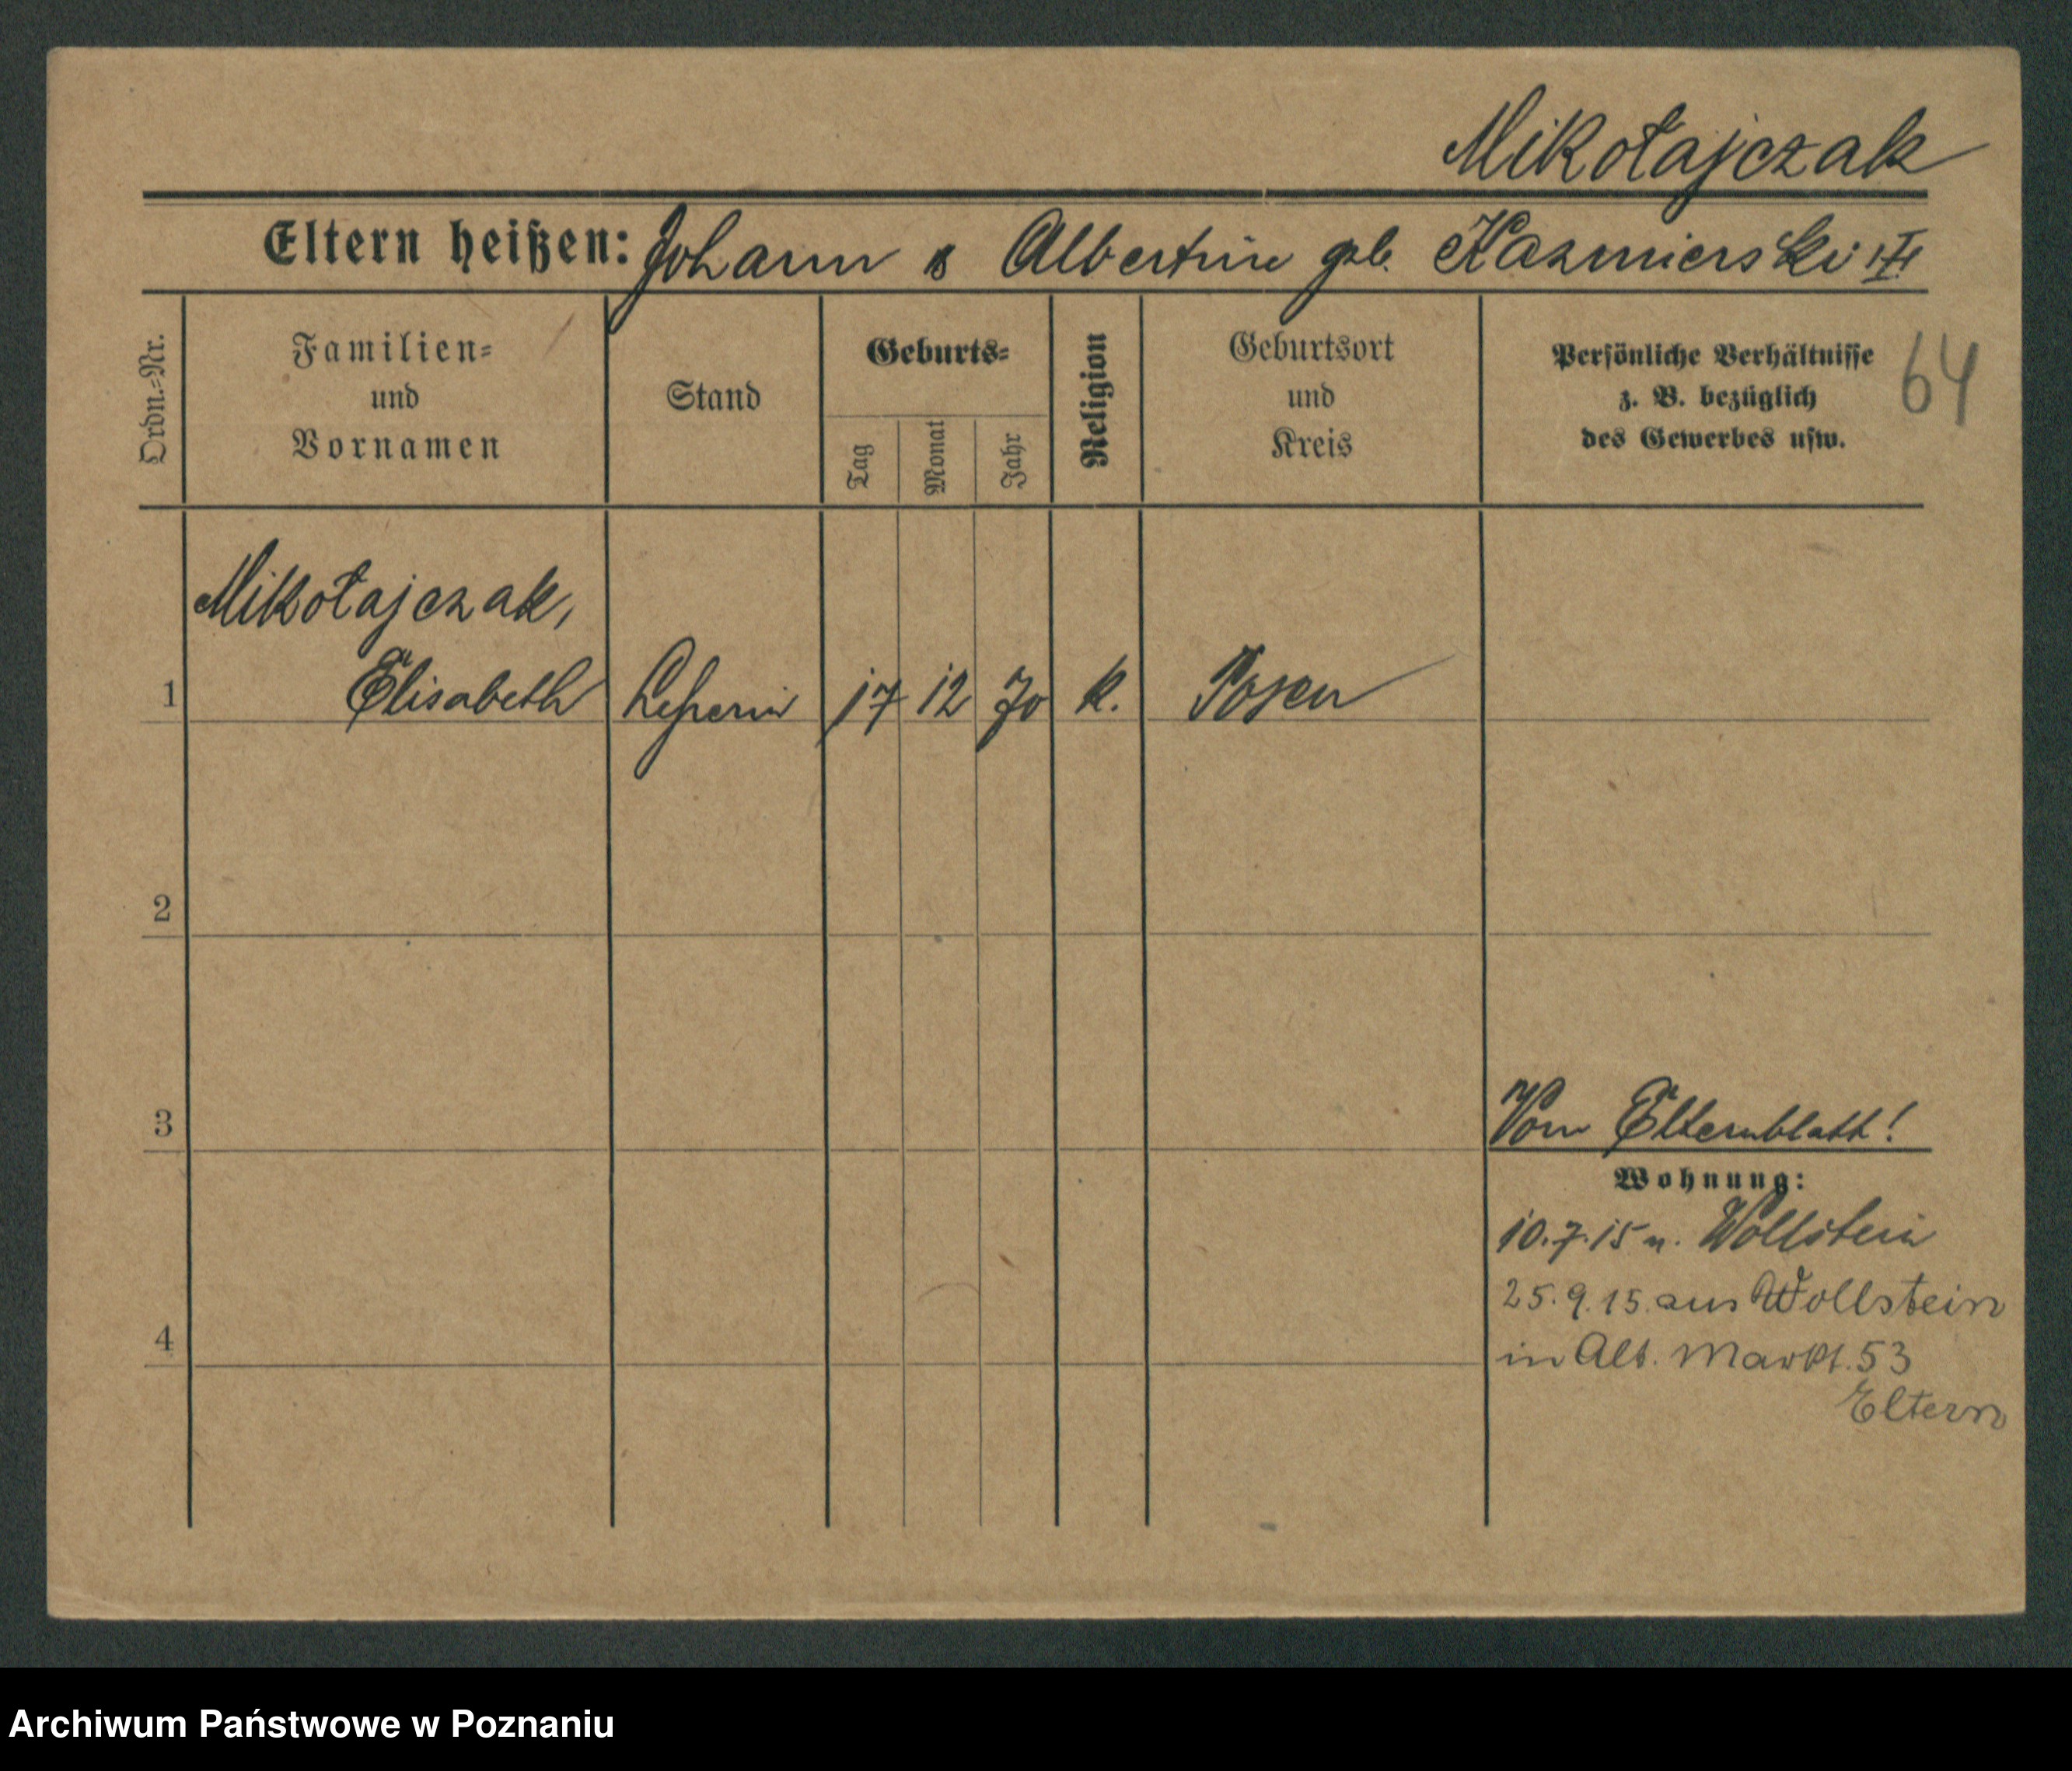 Mikołajczak
Eltern heißen: Johann & Albertine geb. Kazmierski
64
Ordn.=Nr.
Familien=
und
Vornamen
Stand
Geburts=
Tag
Monat
Jahr
Religion
Geburtsort
und
Kreis
Persönliche Verhältnisse
z. B. bezüglich
des Gewerbes usw.
Mikołajczak,
1 Elisabeth 17 12 70 k. Posen
2
3 Vom Elternblatt!
Wohnung:
10.7.15 n. Wollstein
25.9.15. aus Wollstein
4 in Alt. Markt. 53
Eltern
Archiwum Państwowe w Poznaniu